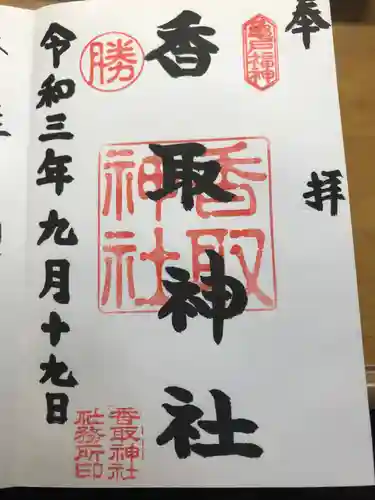 奉拝
亀戸福神
香取神社
香取神社
勝
令和三年九月十九日
香取神社
社務所印